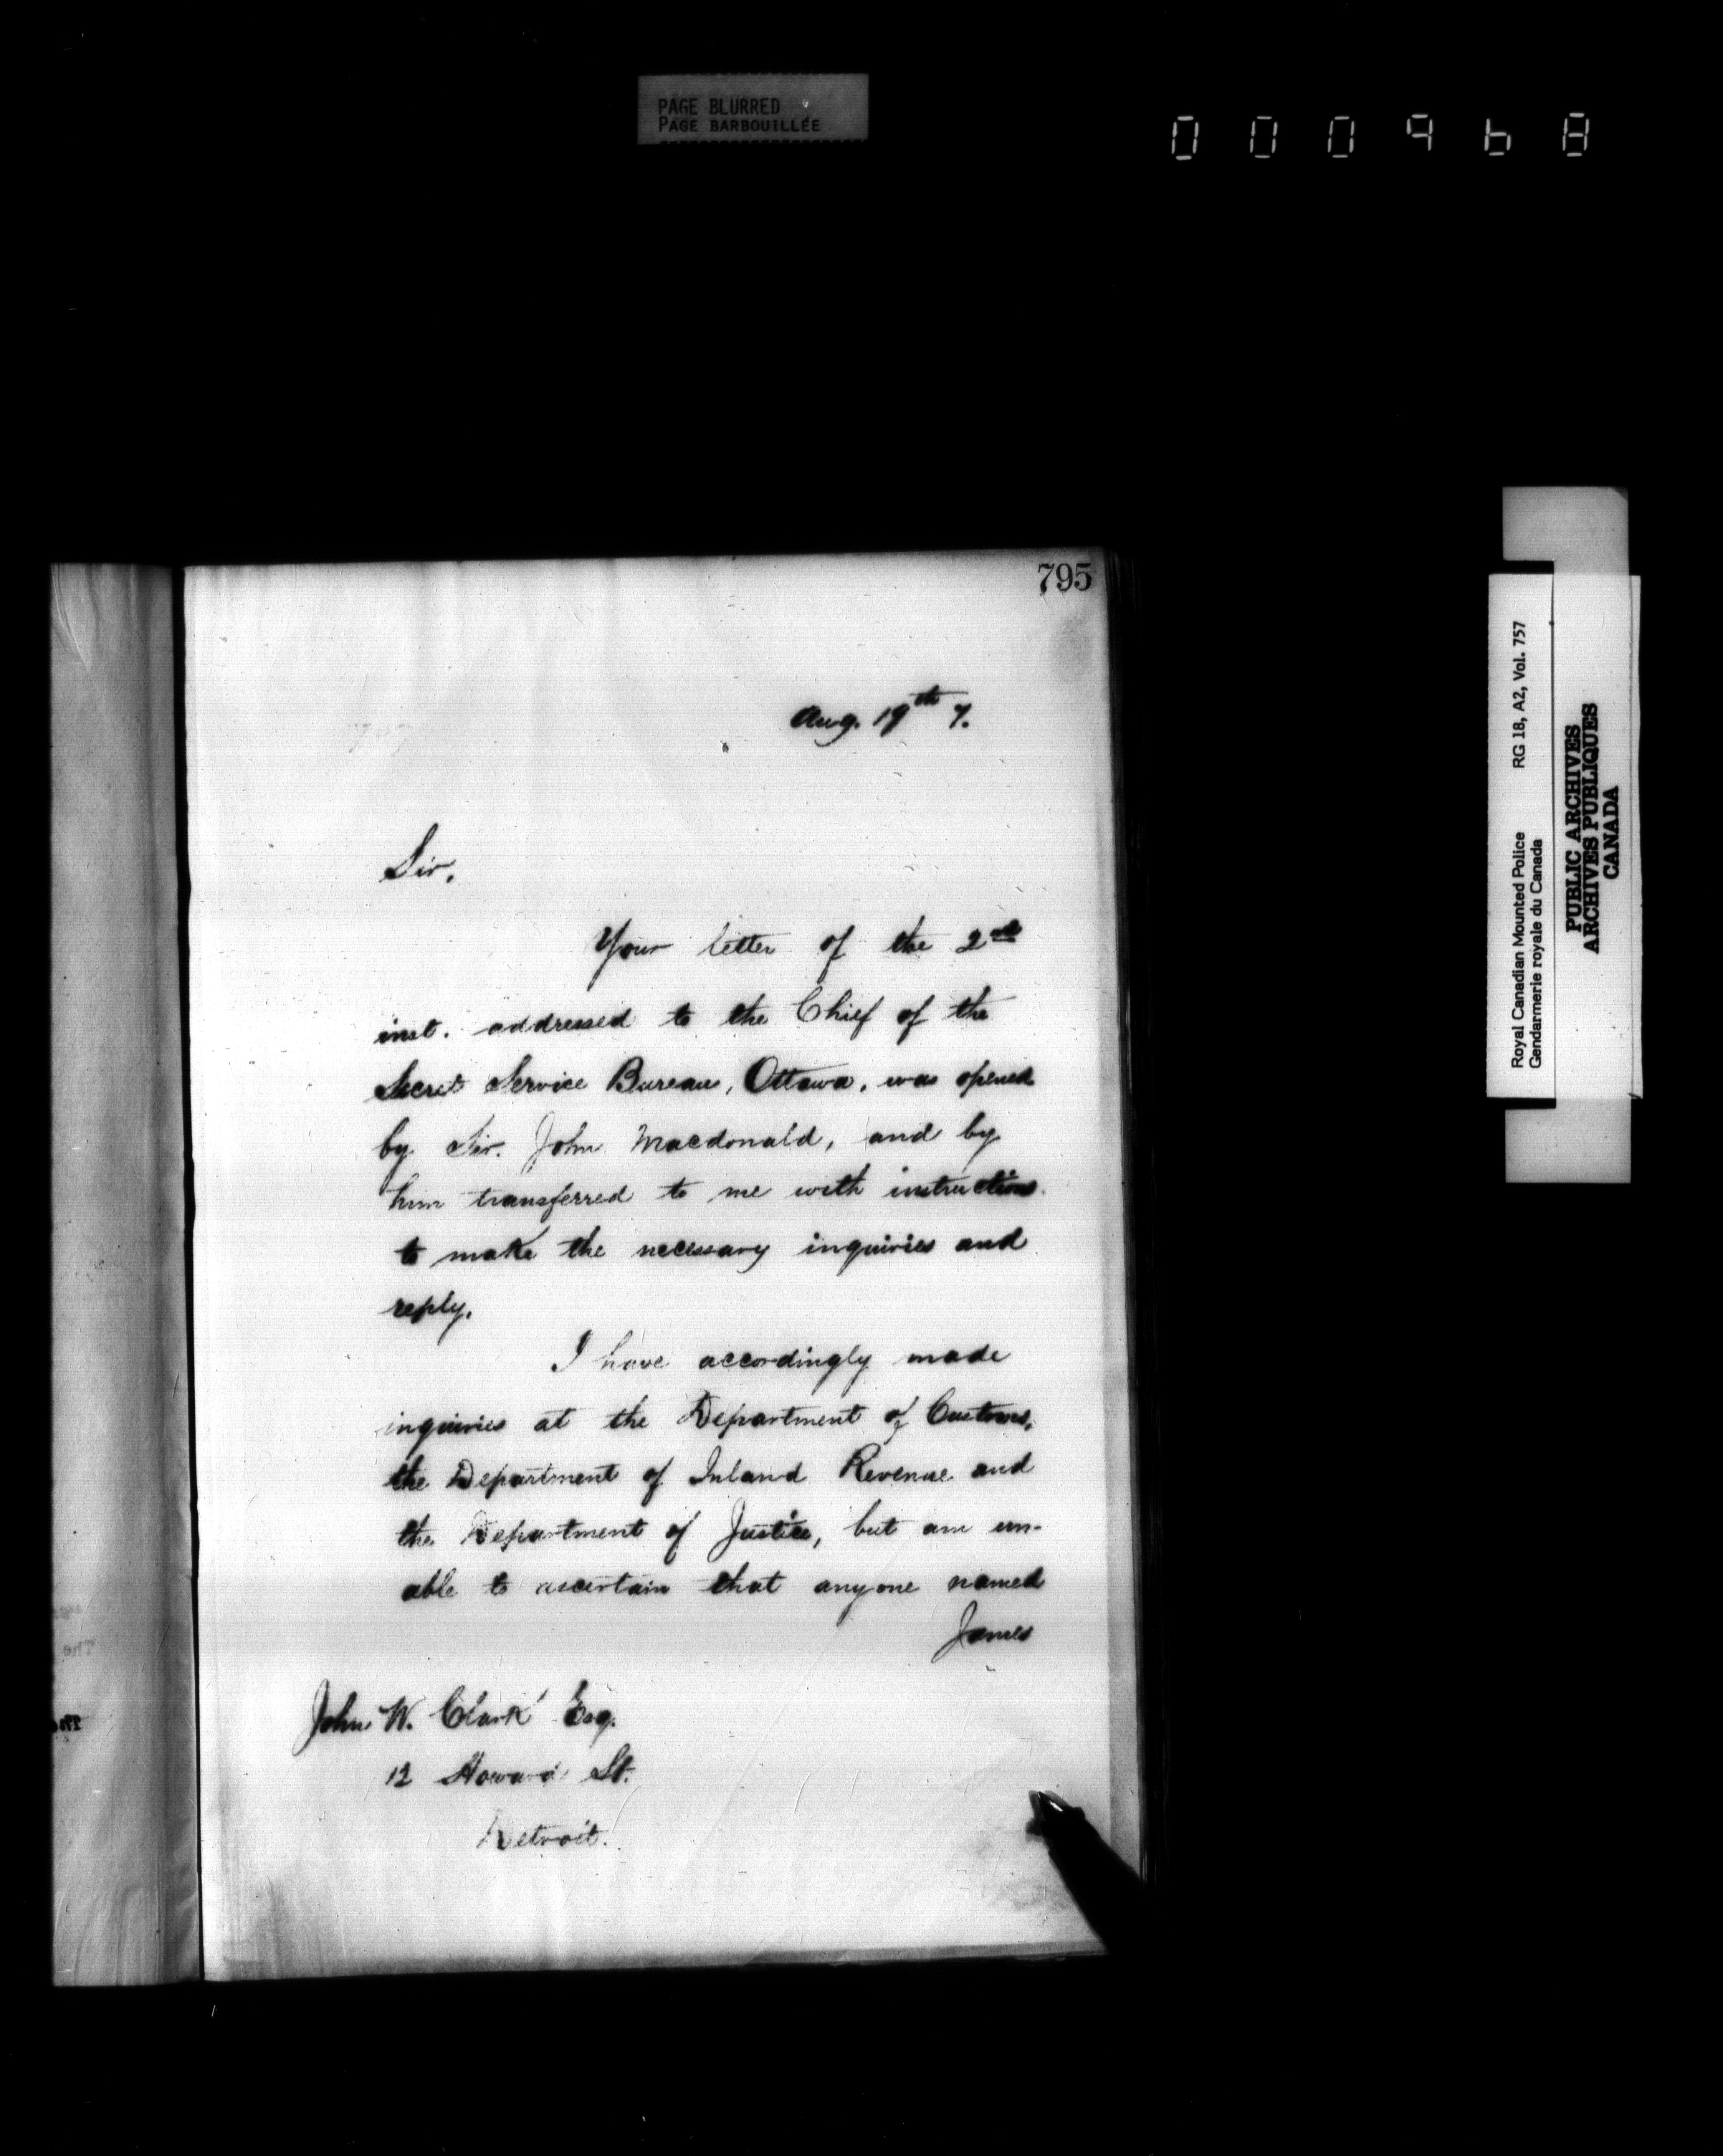 PAGE BLURRED
PAGE BARBOUILLÉE
000968
795
Aug. 19th 7.
Sir,
Your letter of the 2nd
inst. addressed to the Chief of the
Secret Service Bureau, Ottawa, was opened
by Sir. John Macdonald, and by
him transferred to me with instructions
to make the necessary inquiries and
reply.
I have accordingly made
inquiries at the Department of Customs,
the Department of Inland Revenue and
the Department of Justice, but am un-
able to ascertain that anyone named
James
John W. Clark Esq.
12 Howard St.
Detroit.
Royal Canadian Mounted Police RG 18, A2, Vol. 757
Gendarmerie royale du Canada
PUBLIC ARCHIVES
ARCHIVES PUBLIQUES
CANADA